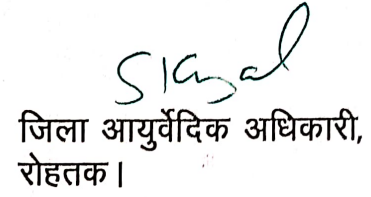 जिला आयुर्वेदिक अधिकारी,
रोहतक।